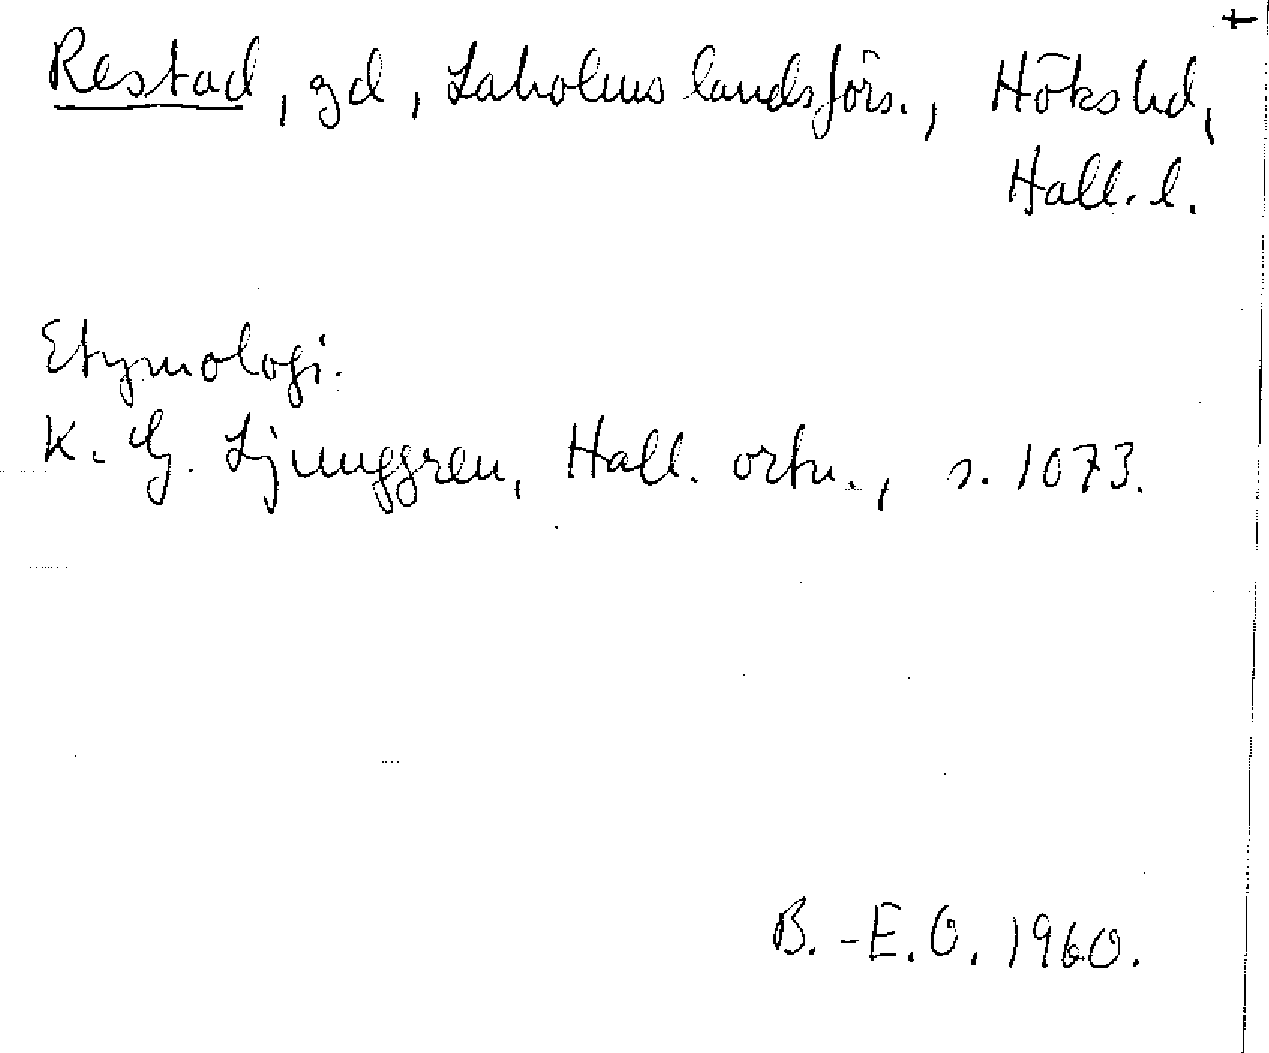 Restad, gd, Laholms landsförs., Höks hd,
Hall. l.
Etymologi.
K. G. Ljunggren, Hall. ortn., s. 1073.
B.-E.O. 1960.